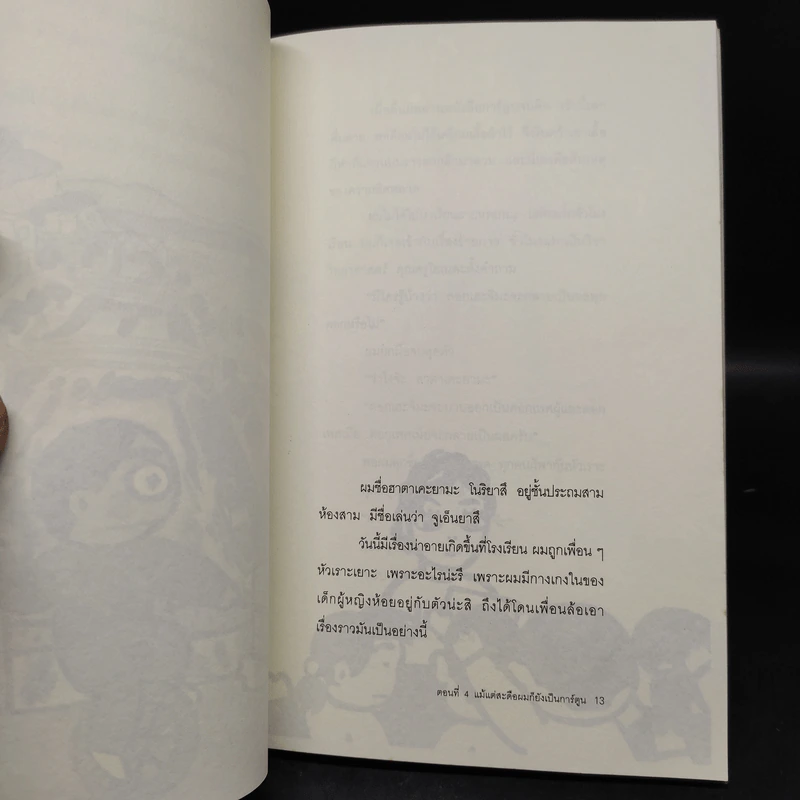 ผมชื่อฮาตาเคะยามะ โนริยาสึ อยู่ชั้นประถมสาม
ห้องสาม มีชื่อเล่นว่า จูเอ็นยาสึ
วันนี้มีเรื่องน่าอายเกิดขึ้นที่โรงเรียน ผมถูกเพื่อน ๆ
หัวเราะเยาะ เพราะอะไรน่ะรึ เพราะผมมีกางเกงในของ
เด็กผู้หญิงห้อยอยู่กับตัวน่ะสิ ถึงได้โดนเพื่อนล้อเอา
เรื่องราวมันเป็นอย่างนี้
ตอนที่ 4 แม้แต่สะดือผมก็ยังเป็นการ์ตูน 13